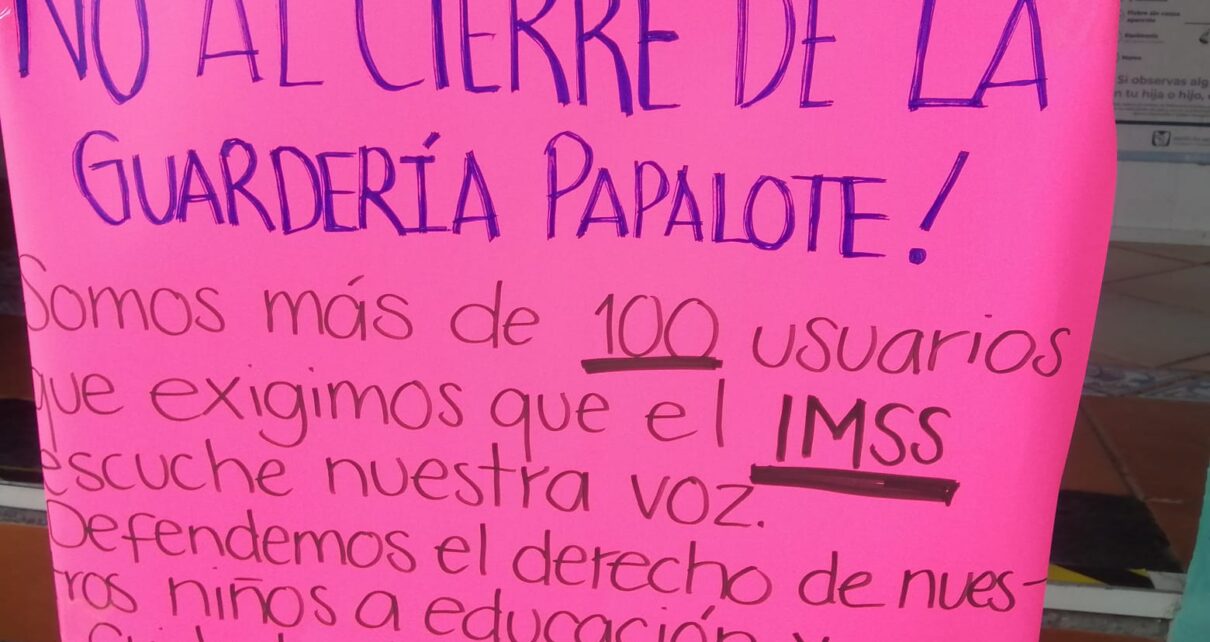 NO AL CIERRE DE LA
GUARDERÍA PAPALOTE!
Somos más de 100 usuarios
que exigimos que el IMSS
escuche nuestra voz.
Defendemos el derecho de nues-
tros niños a educación y
Si observas alg
n tu hija o hijo,